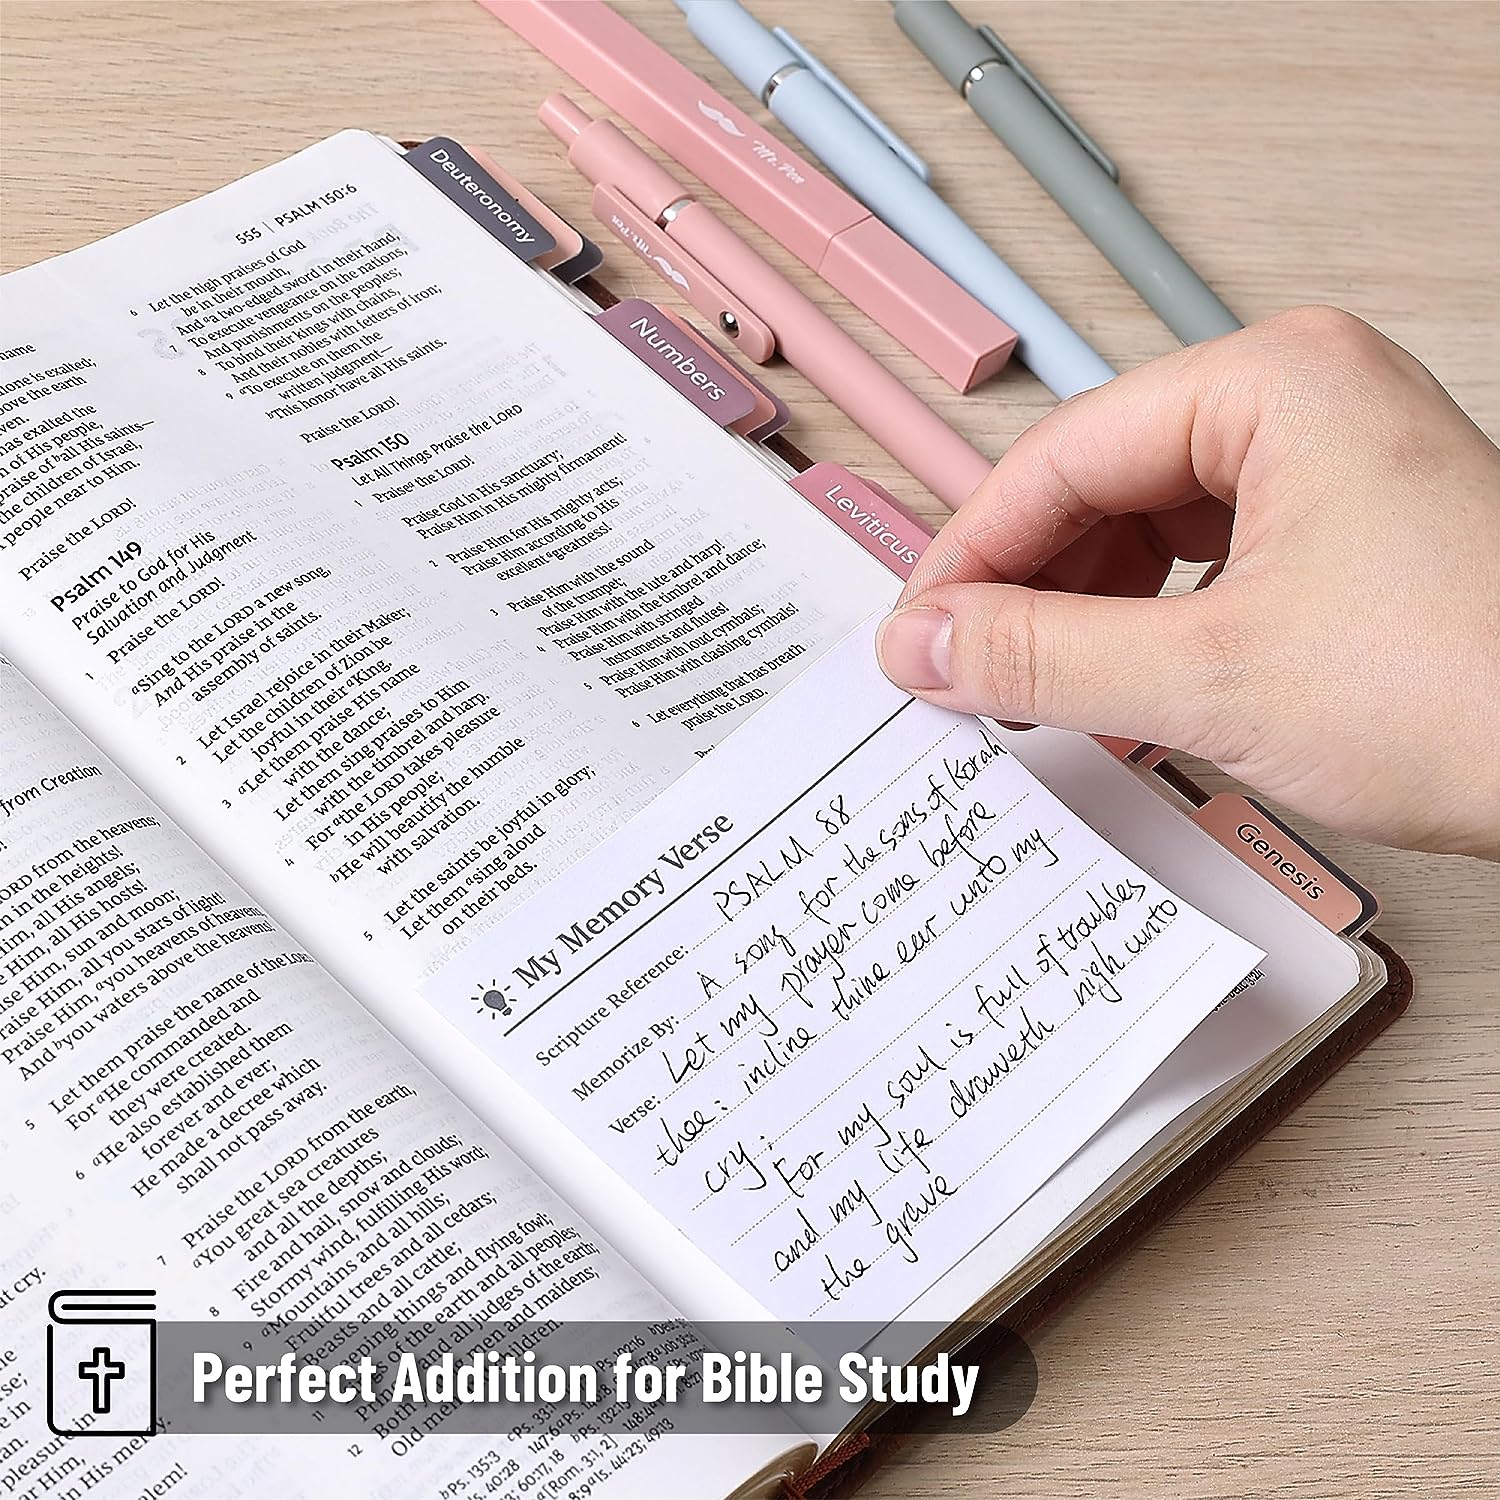 555 | PSALM 150:6
name
alone is exalted;
above the earth
has exalted the
of His people,
praise of ᵇall His saints—
the children of Israel,
people near to Him.
Praise the LORD!
Psalm 149
Praise to God for His
Salvation and Judgment
1 Praise the LORD!
ᵃSing to the LORD a new song,
And His praise in the
assembly of saints.
2 Let Israel rejoice in their Maker;
Let the children of Zion be
joyful in their ᵃKing.
3 ᵃLet them praise His name
with the dance;
Let them sing praises to Him
with the timbrel and harp.
4 For ᵃthe LORD takes pleasure
in His people;
ᵇHe will beautify the humble
with salvation.
5 Let the saints be joyful in glory;
Let them ᵃsing aloud
on their beds.
6 Let the high praises of God
be in their mouth,
And ᵃa two-edged sword in their hand,
7 To execute vengeance on the nations,
And punishments on the peoples;
8 To bind their kings with chains,
And their nobles with fetters of iron;
9 ᵃTo execute on them the
written judgment—
ᵇThis honor have all His saints.
Praise the LORD!
Psalm 150
Let All Things Praise the LORD
1 Praiseᵃ the LORD!
Praise God in His sanctuary;
Praise Him in His mighty firmament!
2 Praise Him for His mighty acts;
Praise Him according to His
excellent ᵃgreatness!
3 Praise Him with the sound
of the trumpet;
Praise Him with the lute and harp!
4 Praise Him with the timbrel and dance;
Praise Him with stringed
instruments and flutes!
5 Praise Him with loud cymbals;
Praise Him with clashing cymbals!
6 Let everything that has breath
praise the LORD.
from Creation
LORD from the heavens;
in the heights!
Him, all His angels;
Him, all His hosts!
Him, sun and moon;
Praise Him, all you stars of light!
Praise Him, ᵃyou heavens of heavens,
And ᵇyou waters above the heavens!
5 Let them praise the name of the LORD,
For ᵃHe commanded and
they were created.
6 ᵃHe also established them
forever and ever;
He made a decree which
shall not pass away.
7 Praise the LORD from the earth,
ᵃYou great sea creatures
and all the depths;
8 Fire and hail, snow and clouds;
Stormy wind, fulfilling His word;
9 ᵃMountains and all hills;
Fruitful trees and all cedars;
Beasts and all cattle;
Creeping things and flying fowl;
of the earth and all peoples;
and all judges of the earth;
men and maidens;
12
Old men and children.
Deuteronomy
Numbers
Leviticus
Genesis
Mr. Pen
Mr. Pen
My Memory Verse
Scripture Reference: PSALM 88
Memorize By: A song for the sons of Korah
Verse: Let my prayer come before
thee: incline thine ear unto my
cry;
For my soul is full of troubles
and my life draweth nigh unto
the grave
Perfect Addition for Bible Study